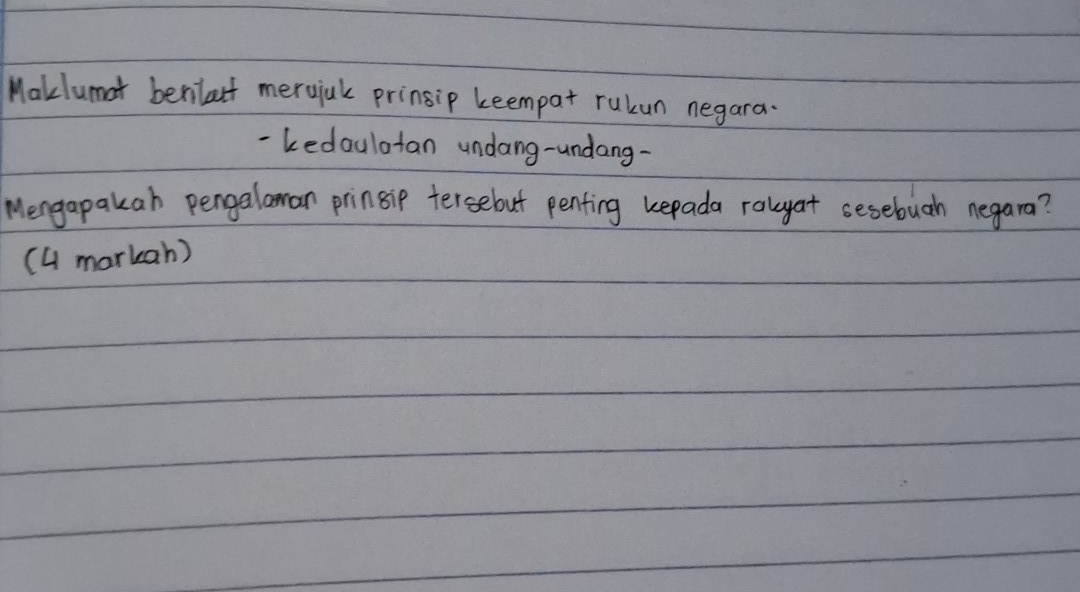 Maklumat berikut merujuk prinsip keempat rukun negara.
- kedaulatan undang-undang -
Mengapakah pengalaman prinsip tersebut penting kepada rakyat sesebuah negara?
(4 markah)